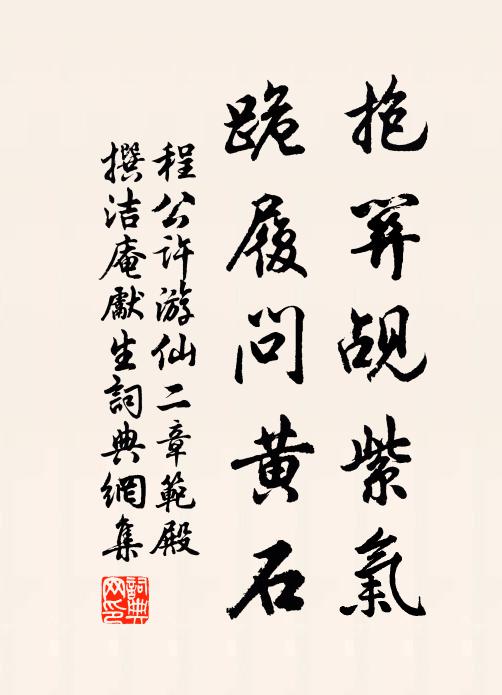 抱關覘紫氣
跪履問黄石
程公許游仙二章範殿
撰洁庵獻生詞典網集
詞典
网印